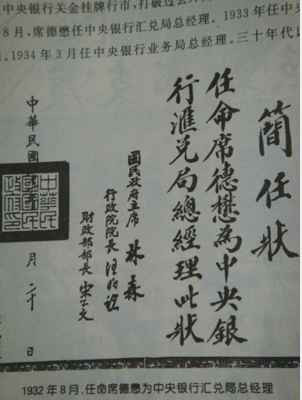 中央银行关金挂牌行市，打破过去外
8月，席德懋任中央银行汇兑局总经理。1933年任中
1934年3月任中央银行业务局总经理。三十年代
簡任狀
任命席德懋為中央銀
行滙兌局總經理此狀
國民政府主席 林森
行政院院長 汪兆銘
財政部部長 宋子文
中華民國
月二十日
1932年8月，任命席德懋为中央银行汇兑局总经理